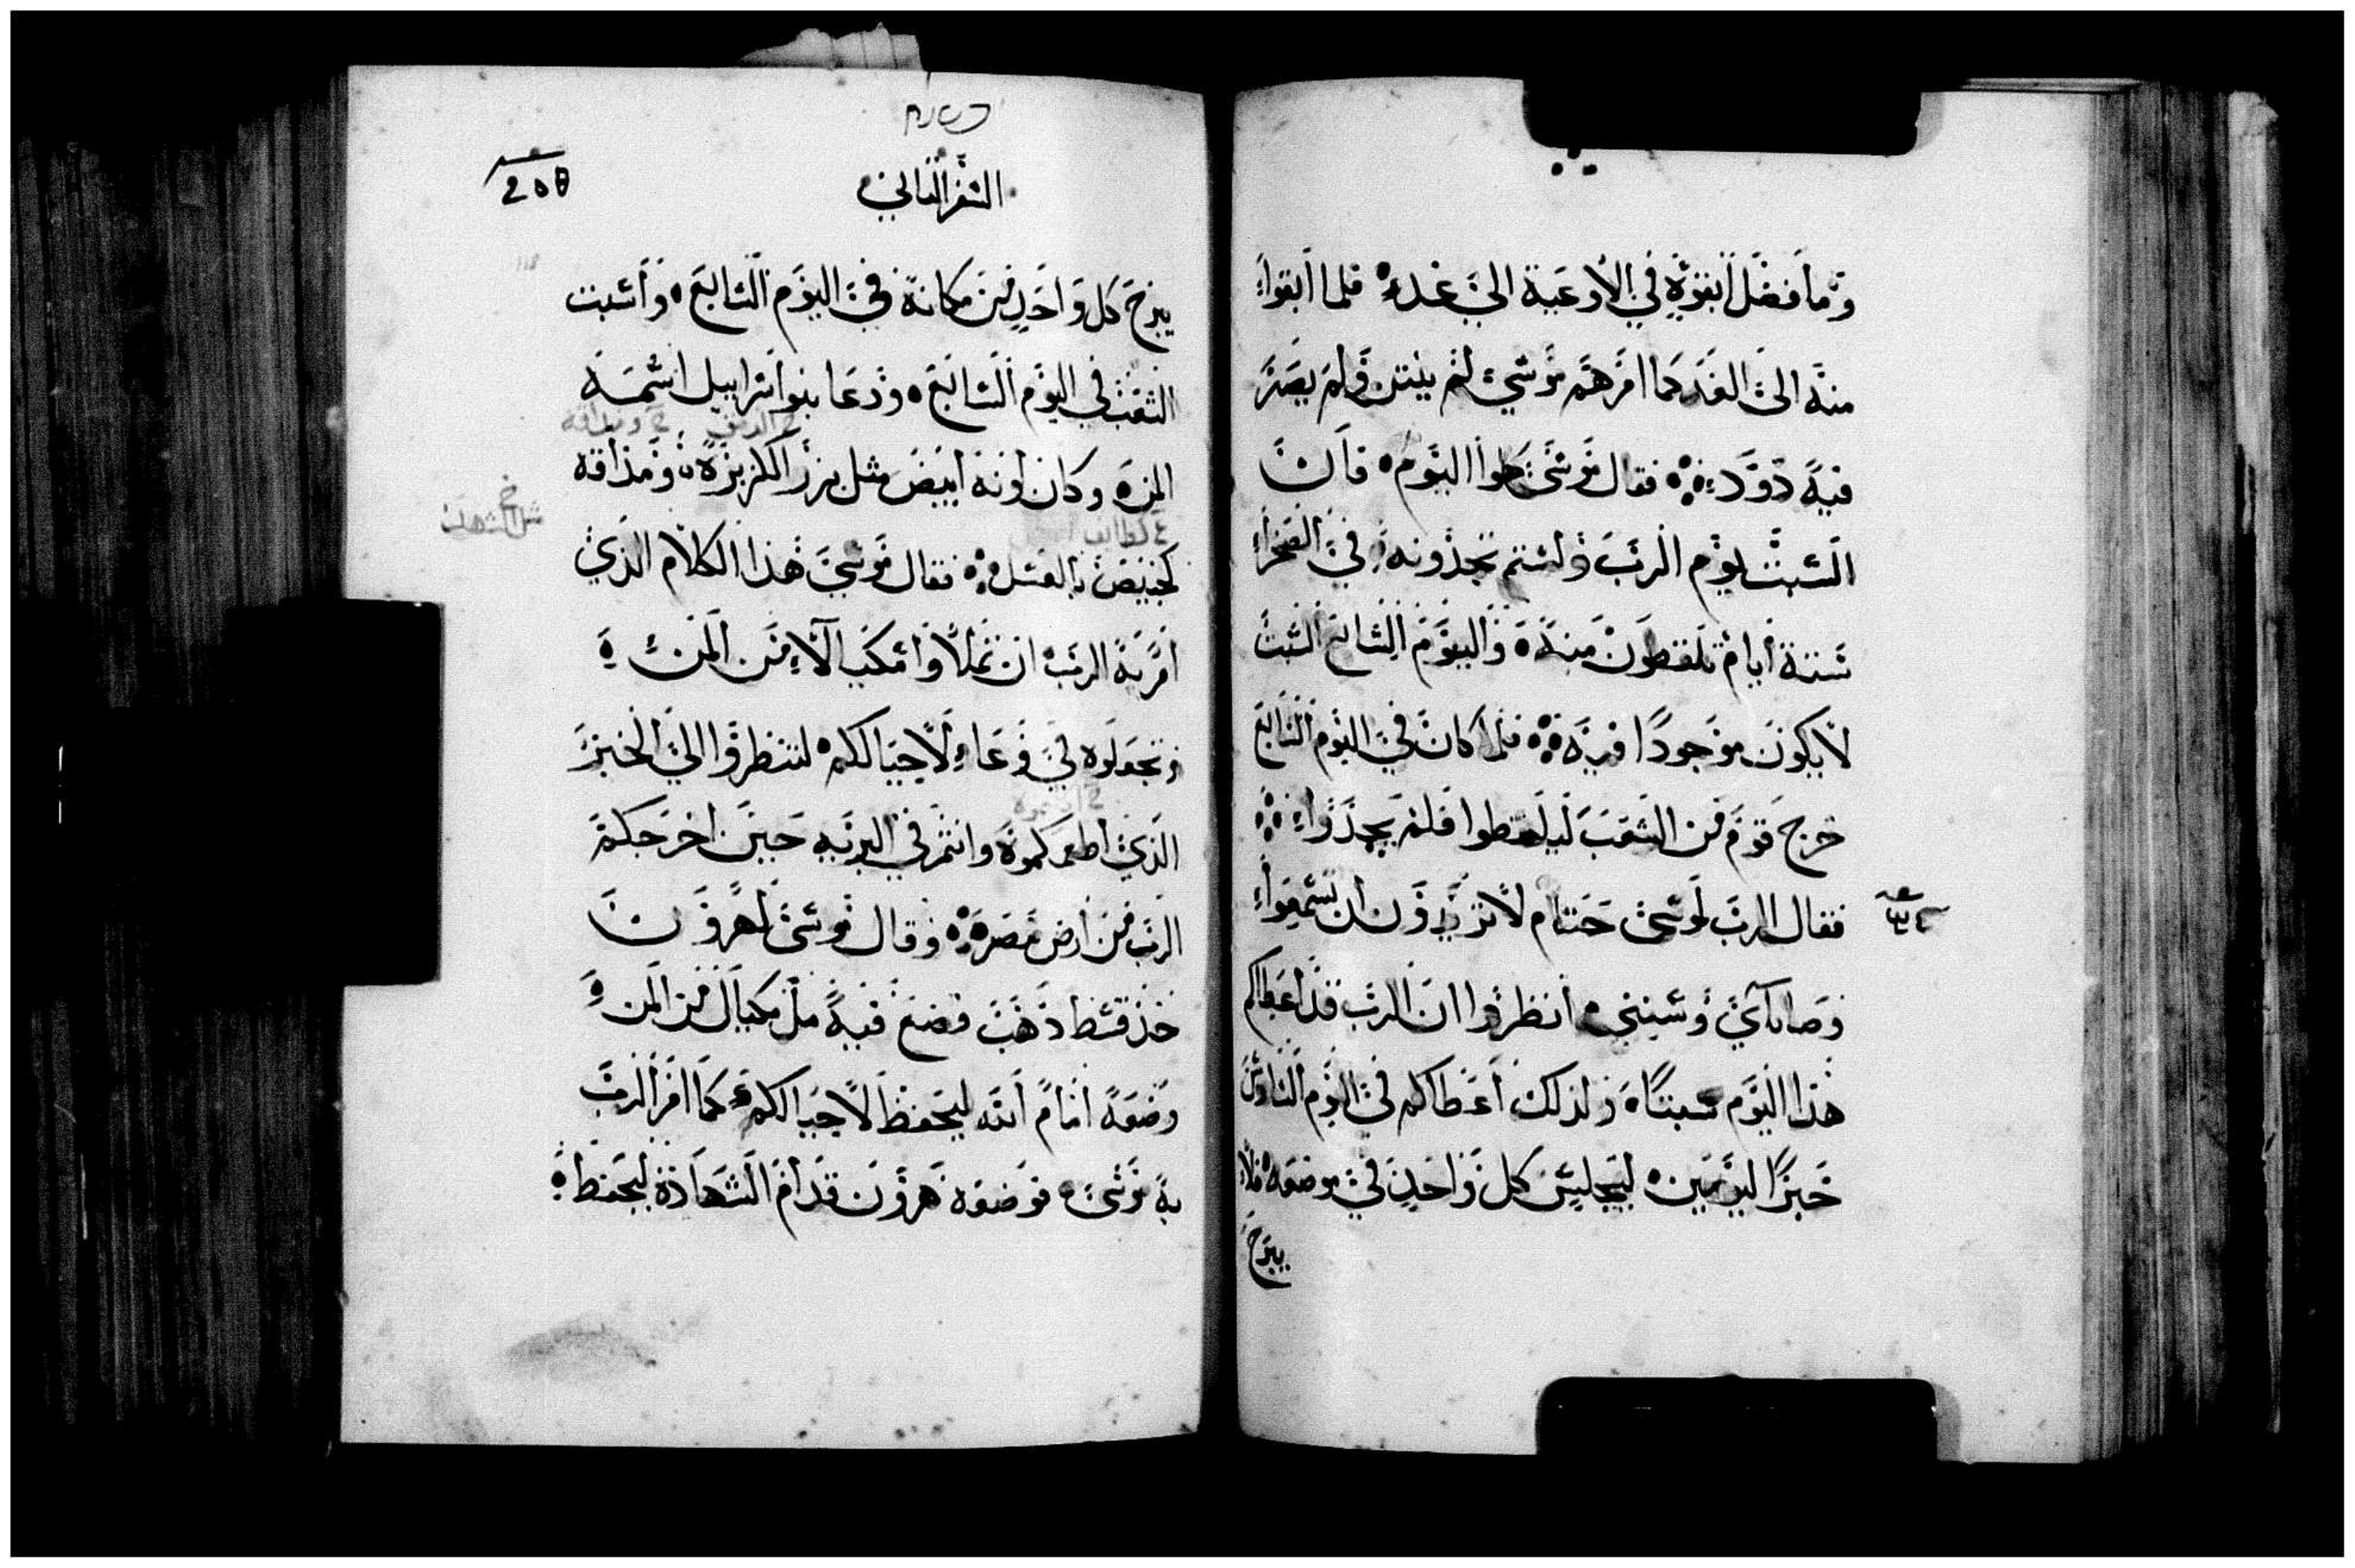 وما فضل ابقوه في الاوعية الي غد فلما ابقوا
منه الى الغد كما امرهم موسي لم ينتن ولم يصر
فيه دود فقال موسى كلوا اليوم فان
السبت ليوم الرب ولستم تجدونه في الصحرا
ستة أيام تلقطون منه واليوم السابع السبت
لا يكون موجودا فيه فلما كان في اليوم السابع
خرج قوم من الشعب ليلقطوا فلم يجدوا
فقال الرب لموسى حتام لا تريدون ان تسمعوا
وصاياي وسنني أنظروا ان الرب قد اعطاكم
هذا اليوم سبتا ولذلك أعطاكم في اليوم السادس
خبز اليومين ليجلس كل واحد في موضعه فلا
يبرح
السفر الثاني
يبرح كل واحد من مكانه في اليوم السابع وأسبت
الشعب في اليوم السابع ودعا بنو اسراييل اسمه
المن وكان لونه أبيض مثل بزر الكزبزة ومذاقه
كخبيص بالعسل فقال موسي هذا الكلام الذي
امر به الرب ان تملاوا مكيالا من المن
وتجعلوه في وعاء لاجيالكم لتنظروا الي الخبز
الذي اطعمكموه وانتم في البرية حين اخرجكم
الرب من أرض مصر وقال موسى لهرون
خذ قسط ذهب وضع فيه مل مكيال من المن
وضعه امام الله ليحفظ لاجيالكم كما امر الرب
به موسى فوضعه هرون قدام الشهادة ليحفظ